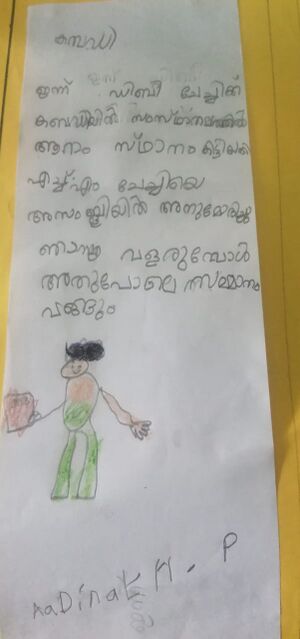 കബഡി
ഇന്ന് ഡിബി ചേച്ചിക്ക്
കബഡിയിൽ സംസ്ഥാനത്തിൽ
ആറാം സ്ഥാനം കിട്ടിയതി
എച്ച് എം ചേച്ചിയെ
അസംബ്ലിയിൽ അനുമോദിച്ചു
ഞാനും വളരുമ്പോൾ
അതുപോലെ സമ്മാനം
വാങ്ങും
AaDinaK H. P